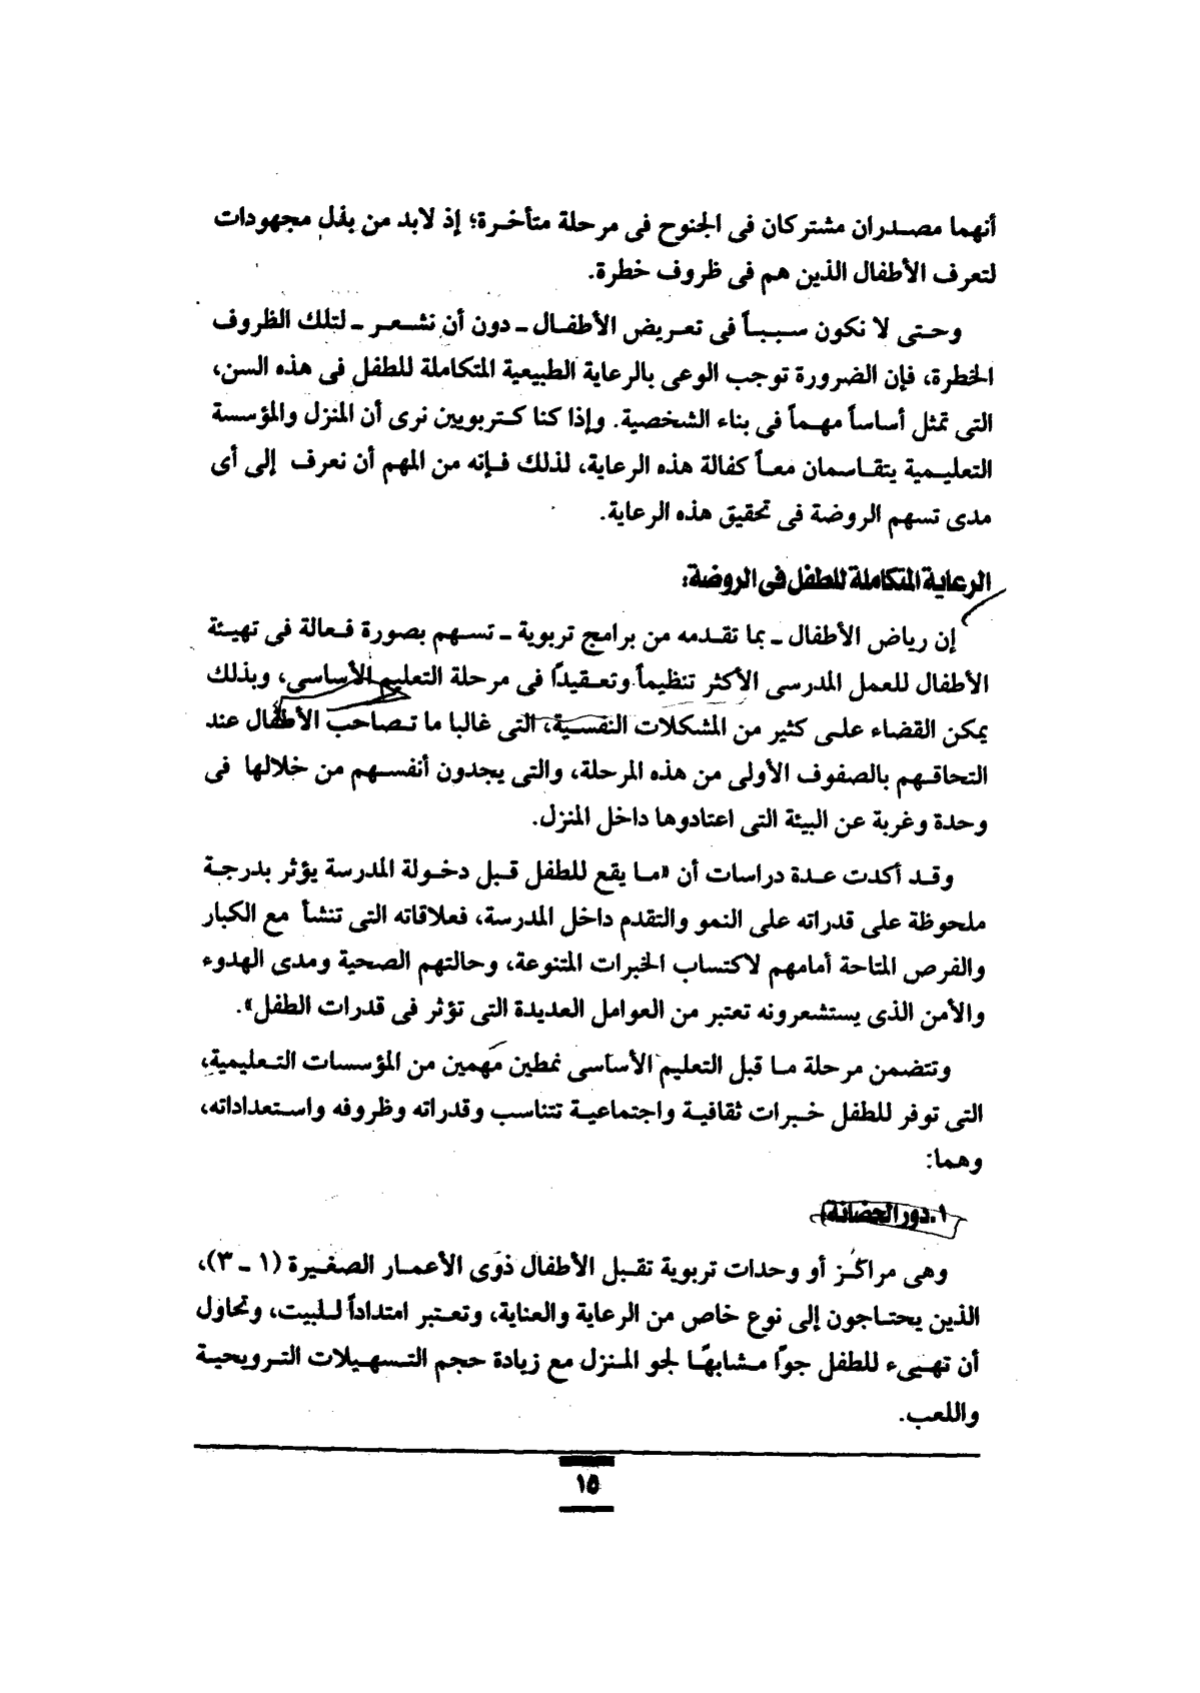 أنهما مصدران مشتركان فى الجنوح فى مرحلة متأخرة؛ إذ لابد من بذل مجهودات
لتعرف الأطفال الذين هم فى ظروف خطرة.
وحتى لا نكون سبباً فى تعريض الأطفال ـ دون أن نشعر ـ لتلك الظروف
الخطرة، فإن الضرورة توجب الوعى بالرعاية الطبيعية المتكاملة للطفل فى هذه السن،
التى تمثل أساساً مهماً فى بناء الشخصية. وإذا كنا كتربويين نرى أن المنزل والمؤسسة
التعليمية يتقاسمان معاً كفالة هذه الرعاية، لذلك فإنه من المهم أن نعرف إلى أى
مدى تسهم الروضة فى تحقيق هذه الرعاية.
الرعاية المتكاملة للطفل فى الروضة:
إن رياض الأطفال ـ بما تقدمه من برامج تربوية ـ تسهم بصورة فعالة فى تهيئة
الأطفال للعمل المدرسى الأكثر تنظيماً وتعقيدًا فى مرحلة التعليم الأساسى، وبذلك
يمكن القضاء على كثير من المشكلات النفسية، التى غالبا ما تصاحب الأطفال عند
التحاقهم بالصفوف الأولى من هذه المرحلة، والتى يجدون أنفسهم من خلالها فى
وحدة وغربة عن البيئة التى اعتادوها داخل المنزل.
وقد أكدت عدة دراسات أن «ما يقع للطفل قبل دخولة المدرسة يؤثر بدرجة
ملحوظة على قدراته على النمو والتقدم داخل المدرسة، فعلاقاته التى تنشأ مع الكبار
والفرص المتاحة أمامهم لاكتساب الخبرات المتنوعة، وحالتهم الصحية ومدى الهدوء
والأمن الذى يستشعرونه تعتبر من العوامل العديدة التى تؤثر فى قدرات الطفل».
وتتضمن مرحلة ما قبل التعليم الأساسى نمطين مهمين من المؤسسات التعليمية،
التى توفر للطفل خبرات ثقافية واجتماعية تتناسب وقدراته وظروفه واستعداداته،
وهما:
١. دور الحضانة
وهى مراكز أو وحدات تربوية تقبل الأطفال ذوى الأعمار الصغيرة (١ ـ ٣)،
الذين يحتاجون إلى نوع خاص من الرعاية والعناية، وتعتبر امتداداً للبيت، وتحاول
أن تهيىء للطفل جوًا مشابهًا لجو المنزل مع زيادة حجم التسهيلات الترويحية
واللعب.
١٥